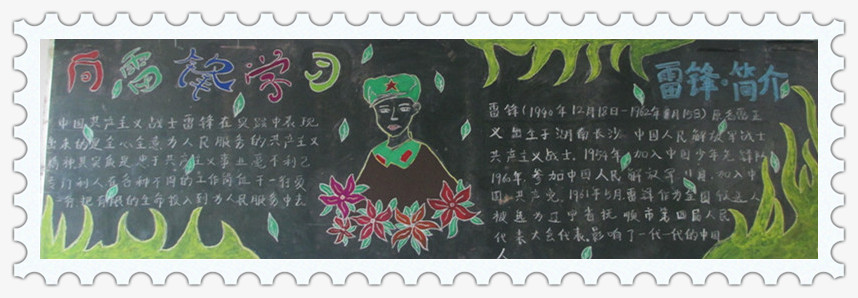 向雷锋学习
中国共产主义战士雷锋在实践中表现
出来的是全心全意为人民服务的共产主义
精神其实质是忠于共产主义事业毫不利己
专门利人在各种不同的工作岗位干一行爱
一行把有限的生命投入到为人民服务中去
雷锋·简介
雷锋(1940年12月18日-1962年8月15日)原名雷正
义出生于湖南长沙.中国人民解放军战士
共产主义战士,1954年加入中国少年先锋队
1960年参加中国人民解放军11月加入中
国共产党.1961年5月雷锋作为全团候选人
被选为辽宁省抚顺市第四届人民
代表大会代表.影响了一代一代的中国
人